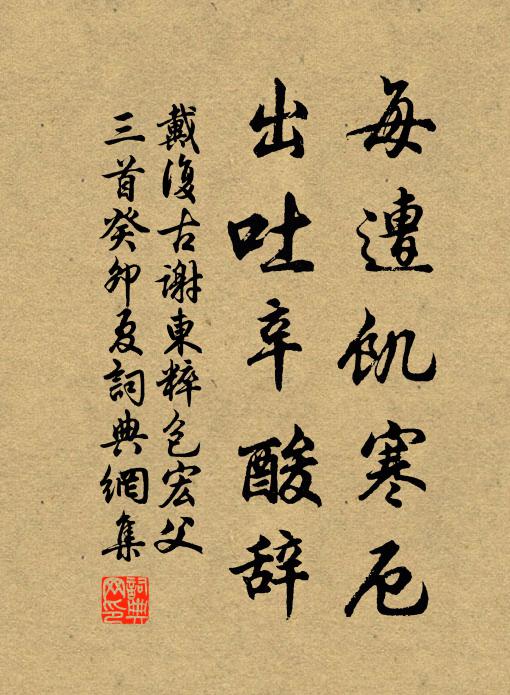 每遭飢寒厄
出吐辛酸辞
戴復古謝東粹包宏父
三首癸卯夏詞典網集
詞典网印